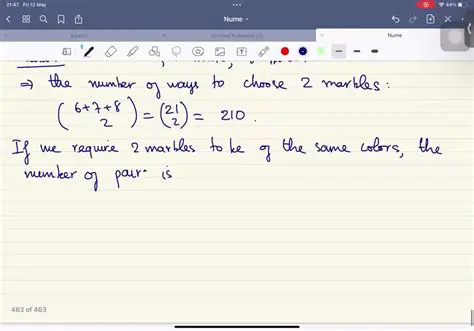 21:47 Fri 12 May
66%
Nume
Search
Untitled Notebook (1)
Nume
⇒ the number of ways to choose 2 marbles:
(6+7+8 2) = (21 2) = 210.
If we require 2 marbles to be of the same colors, the
number of pair is
463 of 463